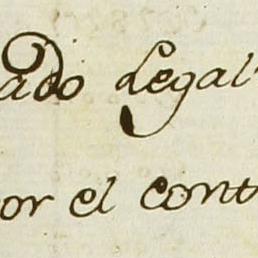 ado Legal
or el cont